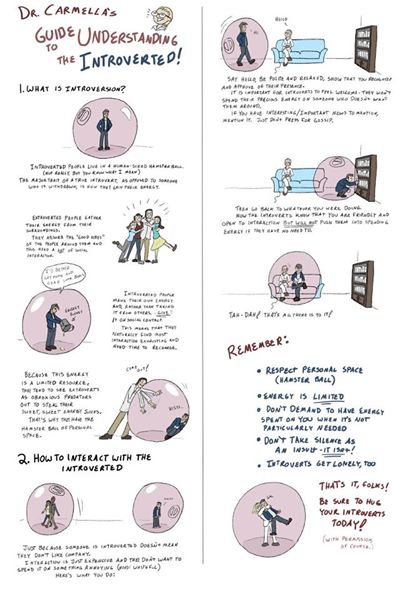 DR. CARMELLA'S
GUIDE TO UNDERSTANDING
THE INTROVERTED!
1. WHAT IS INTROVERSION?
INTROVERTED PEOPLE LIVE IN A HUMAN-SIZED HAMSTER BALL.
(NOT REALLY, BUT YOU KNOW WHAT I MEAN)
OF A TRUE INTROVERT, AS OPPOSED TO SOMEONE
WHO IS WITHDRAWN, IS HOW THEY GAIN THEIR ENERGY.
EXTROVERTED PEOPLE GATHER
THEIR ENERGY FROM THEIR
SURROUNDINGS.
THEY ABSORB THE "GOOD VIBES"
OF THE PEOPLE AROUND THEM AND
NEED A LOT OF SOCIAL
INTERACTION.
I'D BETTER
ENERGY
INTROVERTED PEOPLE
MAKE THEIR OWN ENERGY
AND, RATHER THAN TAKING
IT FROM OTHERS, GIVE
IT ON SOCIAL CONTACT.
THIS MEANS THAT THEY
NATURALLY FIND MOST
INTERACTION EXHAUSTING AND
NEED TIME TO RECHARGE.
BECAUSE THIS ENERGY
IS A LIMITED RESOURCE,
THEY TEND TO SEE EXTROVERTS
AS OBNOXIOUS PREDATORS
OUT TO STEAL THEIR
SWEET, SWEET ENERGY JUICES.
THAT'S WHY THEY HAVE THE
HAMSTER BALL OF PERSONAL
SPACE.
COME OUT!
HISSS
2. HOW TO INTERACT WITH THE
INTROVERTED
JUST BECAUSE SOMEONE IS INTROVERTED DOESN'T MEAN
THEY DON'T LIKE COMPANY.
INTERACTION IS JUST EXPENSIVE AND THEY DON'T WANT TO
SPEND IT ON SOMETHING ANNOYING (AND WASTEFUL)
HERE'S WHAT YOU DO:
HELLO
HI
SAY HELLO. BE POLITE AND RELAXED, SHOW THAT YOU RECOGNIZE
AND APPROVE OF THEIR PRESENCE.
IT IS IMPORTANT FOR INTROVERTS TO FEEL WELCOME; THEY WON'T
SPEND THEIR PRECIOUS ENERGY ON SOMEONE WHO DOESN'T WANT
THEM AROUND.
IF YOU HAVE INTERESTING/IMPORTANT NEWS TO MENTION,
MENTION IT. JUST DON'T PRESS FOR GOSSIP.
THEN GO BACK TO WHATEVER YOU WERE DOING.
NOW THE INTROVERTS KNOW THAT YOU ARE FRIENDLY AND
OPEN TO INTERACTION BUT WILL NOT PUSH THEM INTO SPENDING
ENERGY IF THEY HAVE NO NEED TO.
TAH-DAH! THAT'S ALL THERE IS TO IT!
REMEMBER:
• RESPECT PERSONAL SPACE
(HAMSTER BALL)
• ENERGY IS LIMITED
• DON'T DEMAND TO HAVE ENERGY
SPENT ON YOU WHEN IT'S NOT
PARTICULARLY NEEDED
• DON'T TAKE SILENCE AS
AN INSULT - IT ISN'T!
• INTROVERTS GET LONELY, TOO
THAT'S IT, FOLKS!
BE SURE TO HUG
YOUR INTROVERTS
TODAY!
(WITH PERMISSION
OF COURSE.)